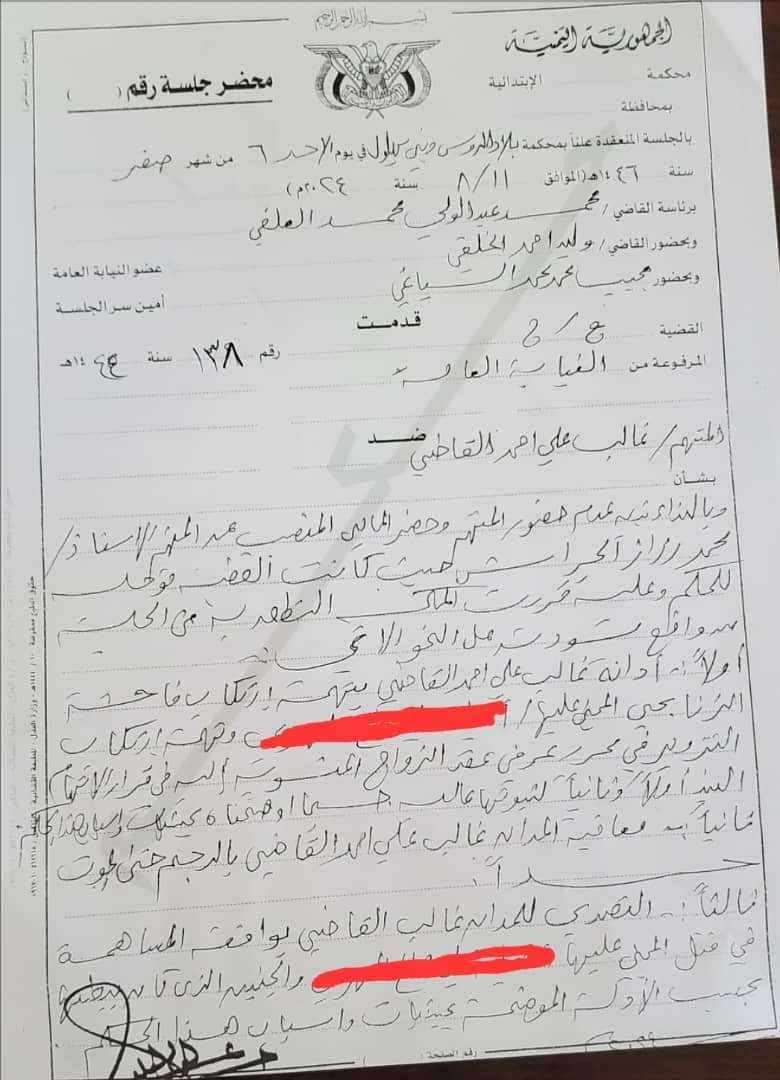 بسم الله الرحمن الرحيم
الجمهورية اليمنية
محكمة الإبتدائية
بمحافظة
محضر جلسة رقم ( )
بالجلسة المنعقدة علناً بمحكمة بلاد الروس وبني بهلول في يوم الاحد ٦ من شهر صفر
سنة ١٤٤٦هـ (الموافق ٨/١١ سنة ٢٠٢٤م)
برئاسة القاضي/ محمد عبدالولي محمد العلفي
وبحضور القاضي/ وليد احمد الخلقي عضو النيابة العامة
وبحضور مجيب محمد محمد السياغي أمين سر الجلسة
القضية ج/ج قدمت
رقم ١٣٨ سنة ١٤٤٥هـ
المرفوعة من النيابة العامة
ضد
المتهم/ غالب علي احمد القاضي
بشأن
وبالنداء تبين عدم حضور المتهم وحضر المحامي المنصب عن المتهم الاستاذ/
محمد الحراسي حيث كانت القضية مؤجلة
للحكم وعليه قررت المحكمة النطق به من
واقع مسودته على النحو الاتي:
أولاً:- أدانة غالب علي احمد القاضي بتهمة إرتكاب فاحشة
الزنا بحق المجني عليها/ وتهمة إرتكاب
التزوير في محرر عرفي عقد الزواج المنسوبة إليه في قرار الاتهام
البند أولاً وثانياً لثبوتها عليه حسبما اوضحناه بحيثيات واسباب هذا الحكم
ثانياً:- معاقبة المدان غالب علي احمد القاضي بالرجم حتى الموت
حداً.
ثالثاً:- التصدي للمدان غالب القاضي بواقعة المساهمة
في قتل المجني عليها والجنين الذي كان ببطنها
بحسب الأدلة الموضحة بحيثيات واسباب هذا الحكم
رقم الصفحة (